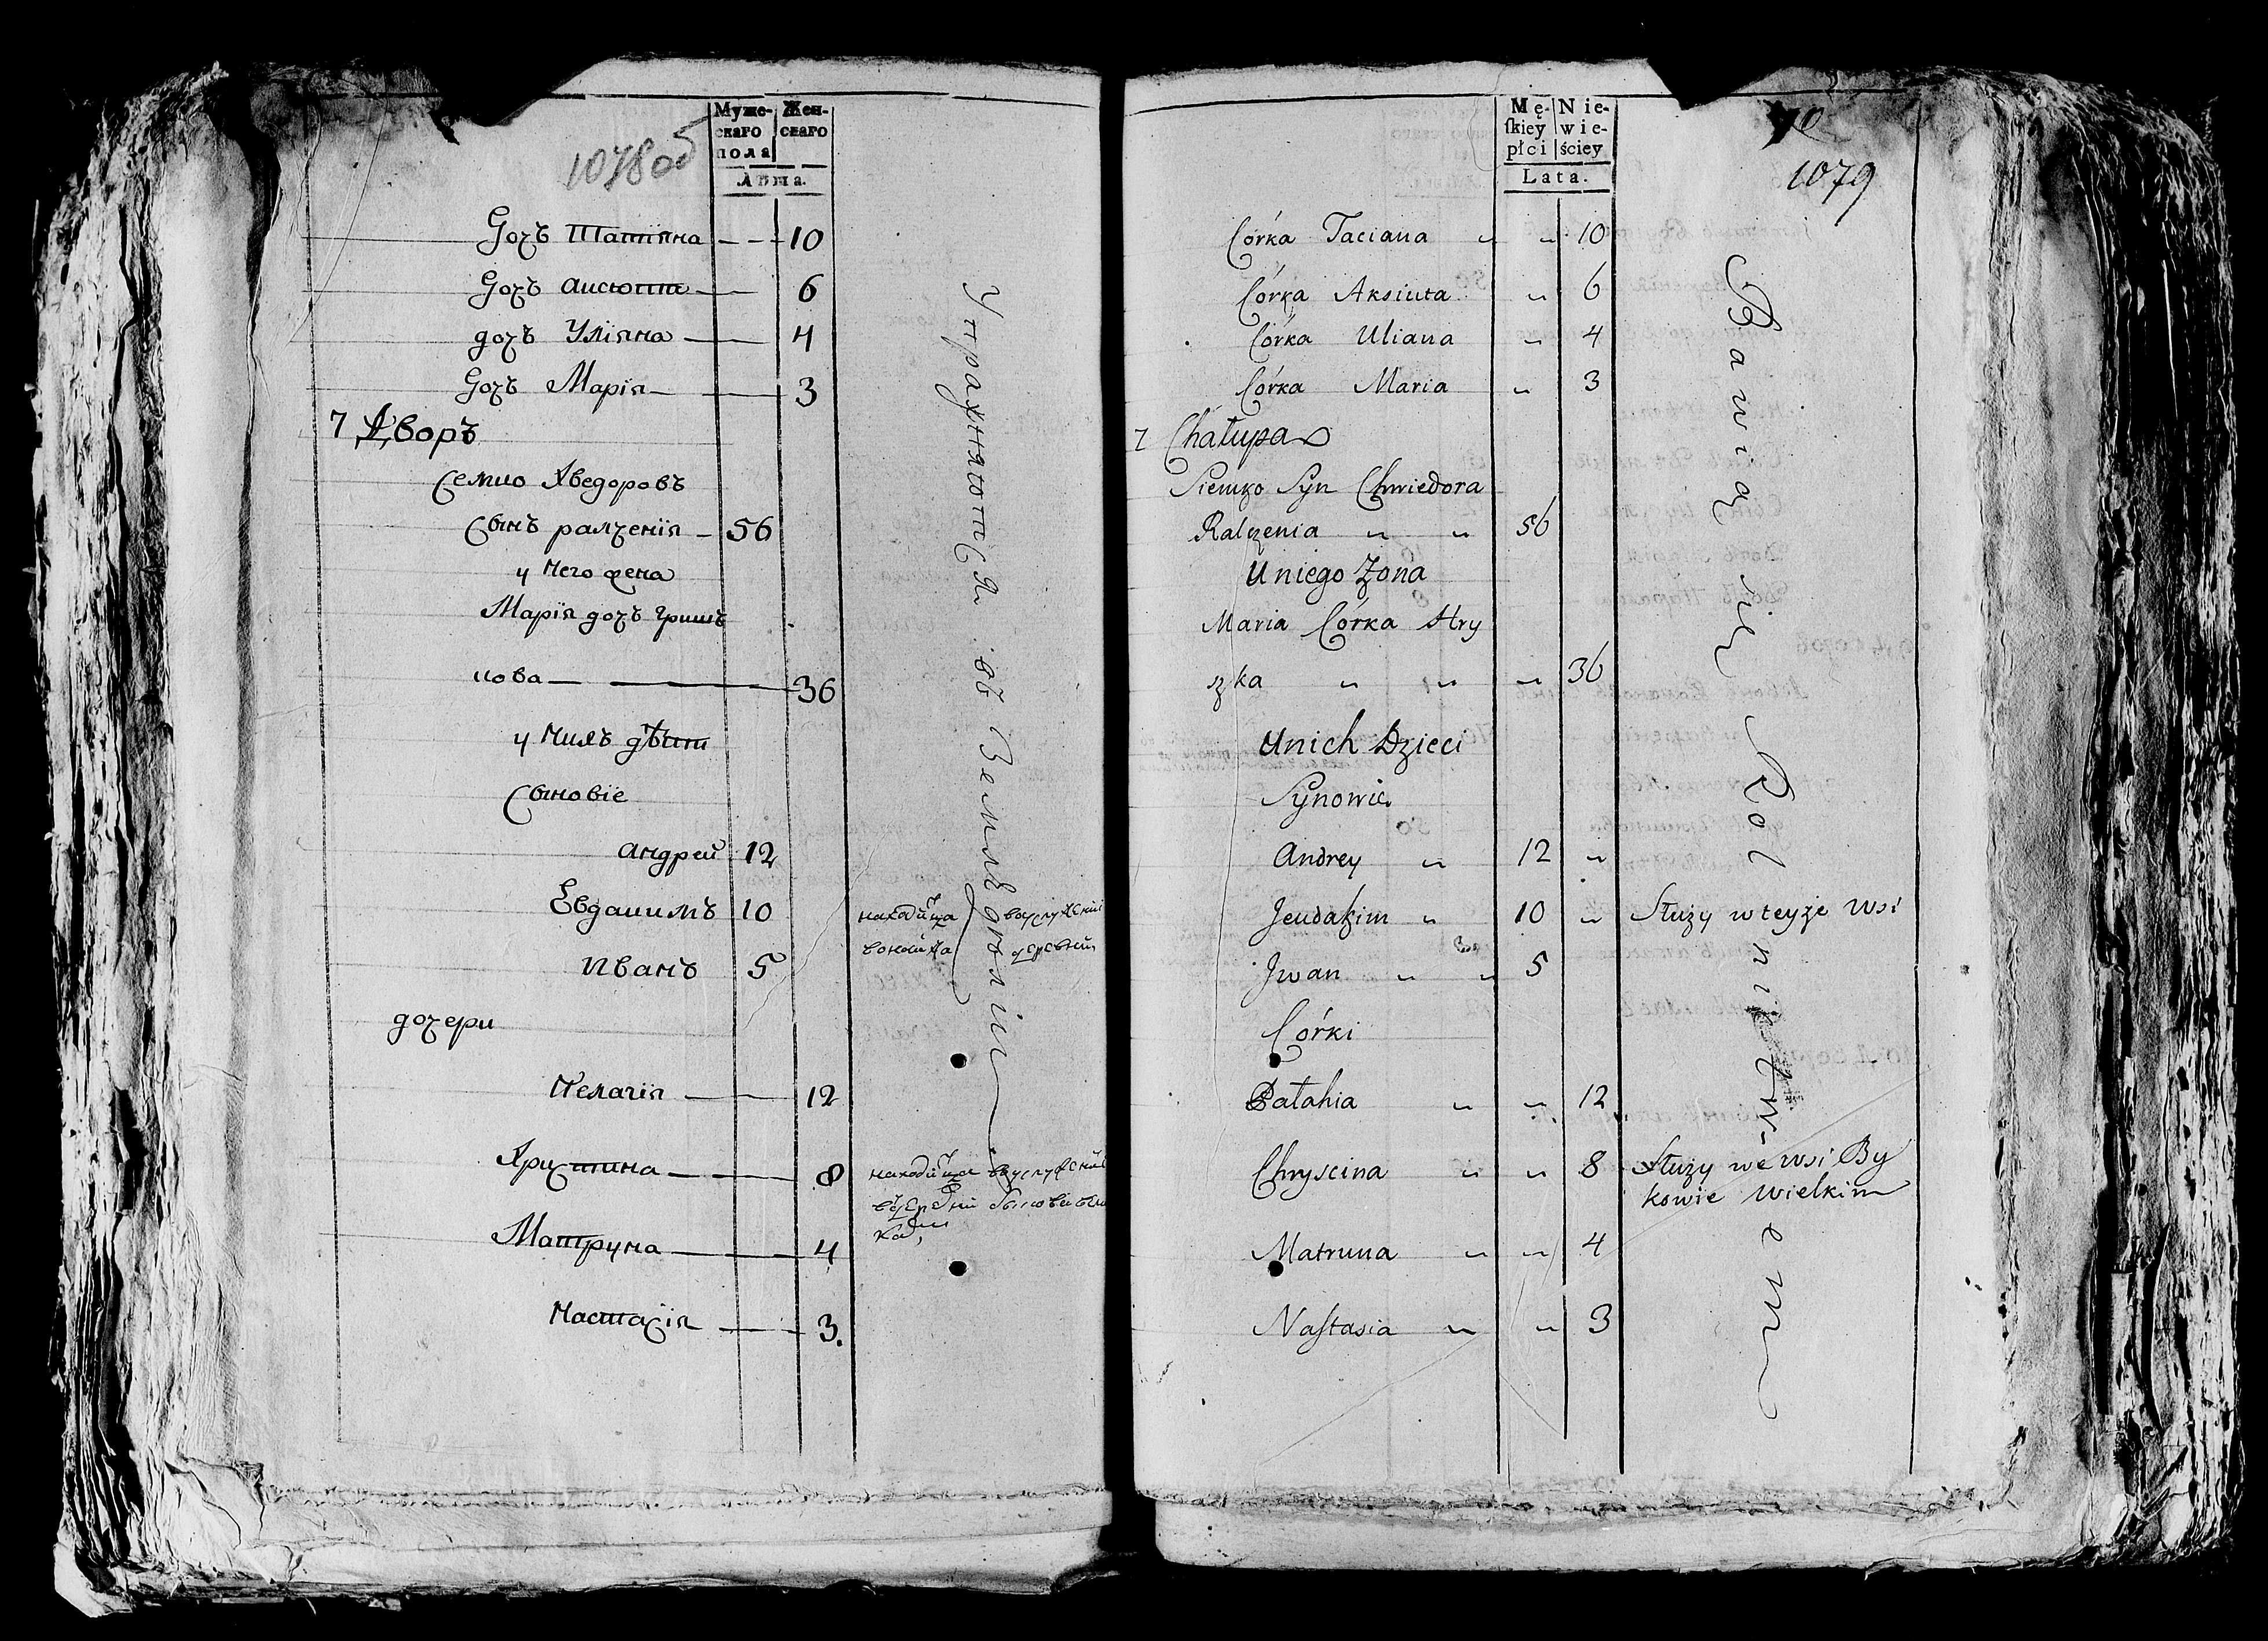 1078об
Муже- Жен-
скаго скаго
пола
Лѣта.
Дочь Татіяна 10
Дочь Аксюта 6
дочь Уліяна 4
Дочь Марія 3
7 Дворъ
Семко Хведоровъ
Сынъ ралченія 56
у него жена
Марія дочь Гриш
кова 36
у нихъ дѣти
Сыновіе
Андрей 12
Евдакимъ 10 находитца вуслуженіи
Иванъ 5
дочери
Пелагія 12
Христина 8 находитца вуслуженіи
Матруна 4
Настасія 3.
Упражняются въ Земледѣліи
70
1079
Mę- Nie-
ſkiey wie-
płci ściey
Lata.
Córka Taciana „ „ 10
Córka Aksiuta „ 6
Córka Uliana „ 4
Córka Maria „ 3
7 Chałupa
Siemko Syn Chwiedora
Ralczenia „ „ 56
U niego Żona
Maria Córka Hry
szka „ „ „ 36
Unich Dzieci
Synowie
Andrey „ 12 „
Jeudakim „ 10 „ Służy w teyże Wsi
Jwan „ „ 5
Córki
Pałahia „ „ 12
Chryscina „ „ 8 Służy we wsi By
kowie Wielkim
Matruna „ „ 4
Naſtasia „ „ 3
Bawią się Rolnictwem